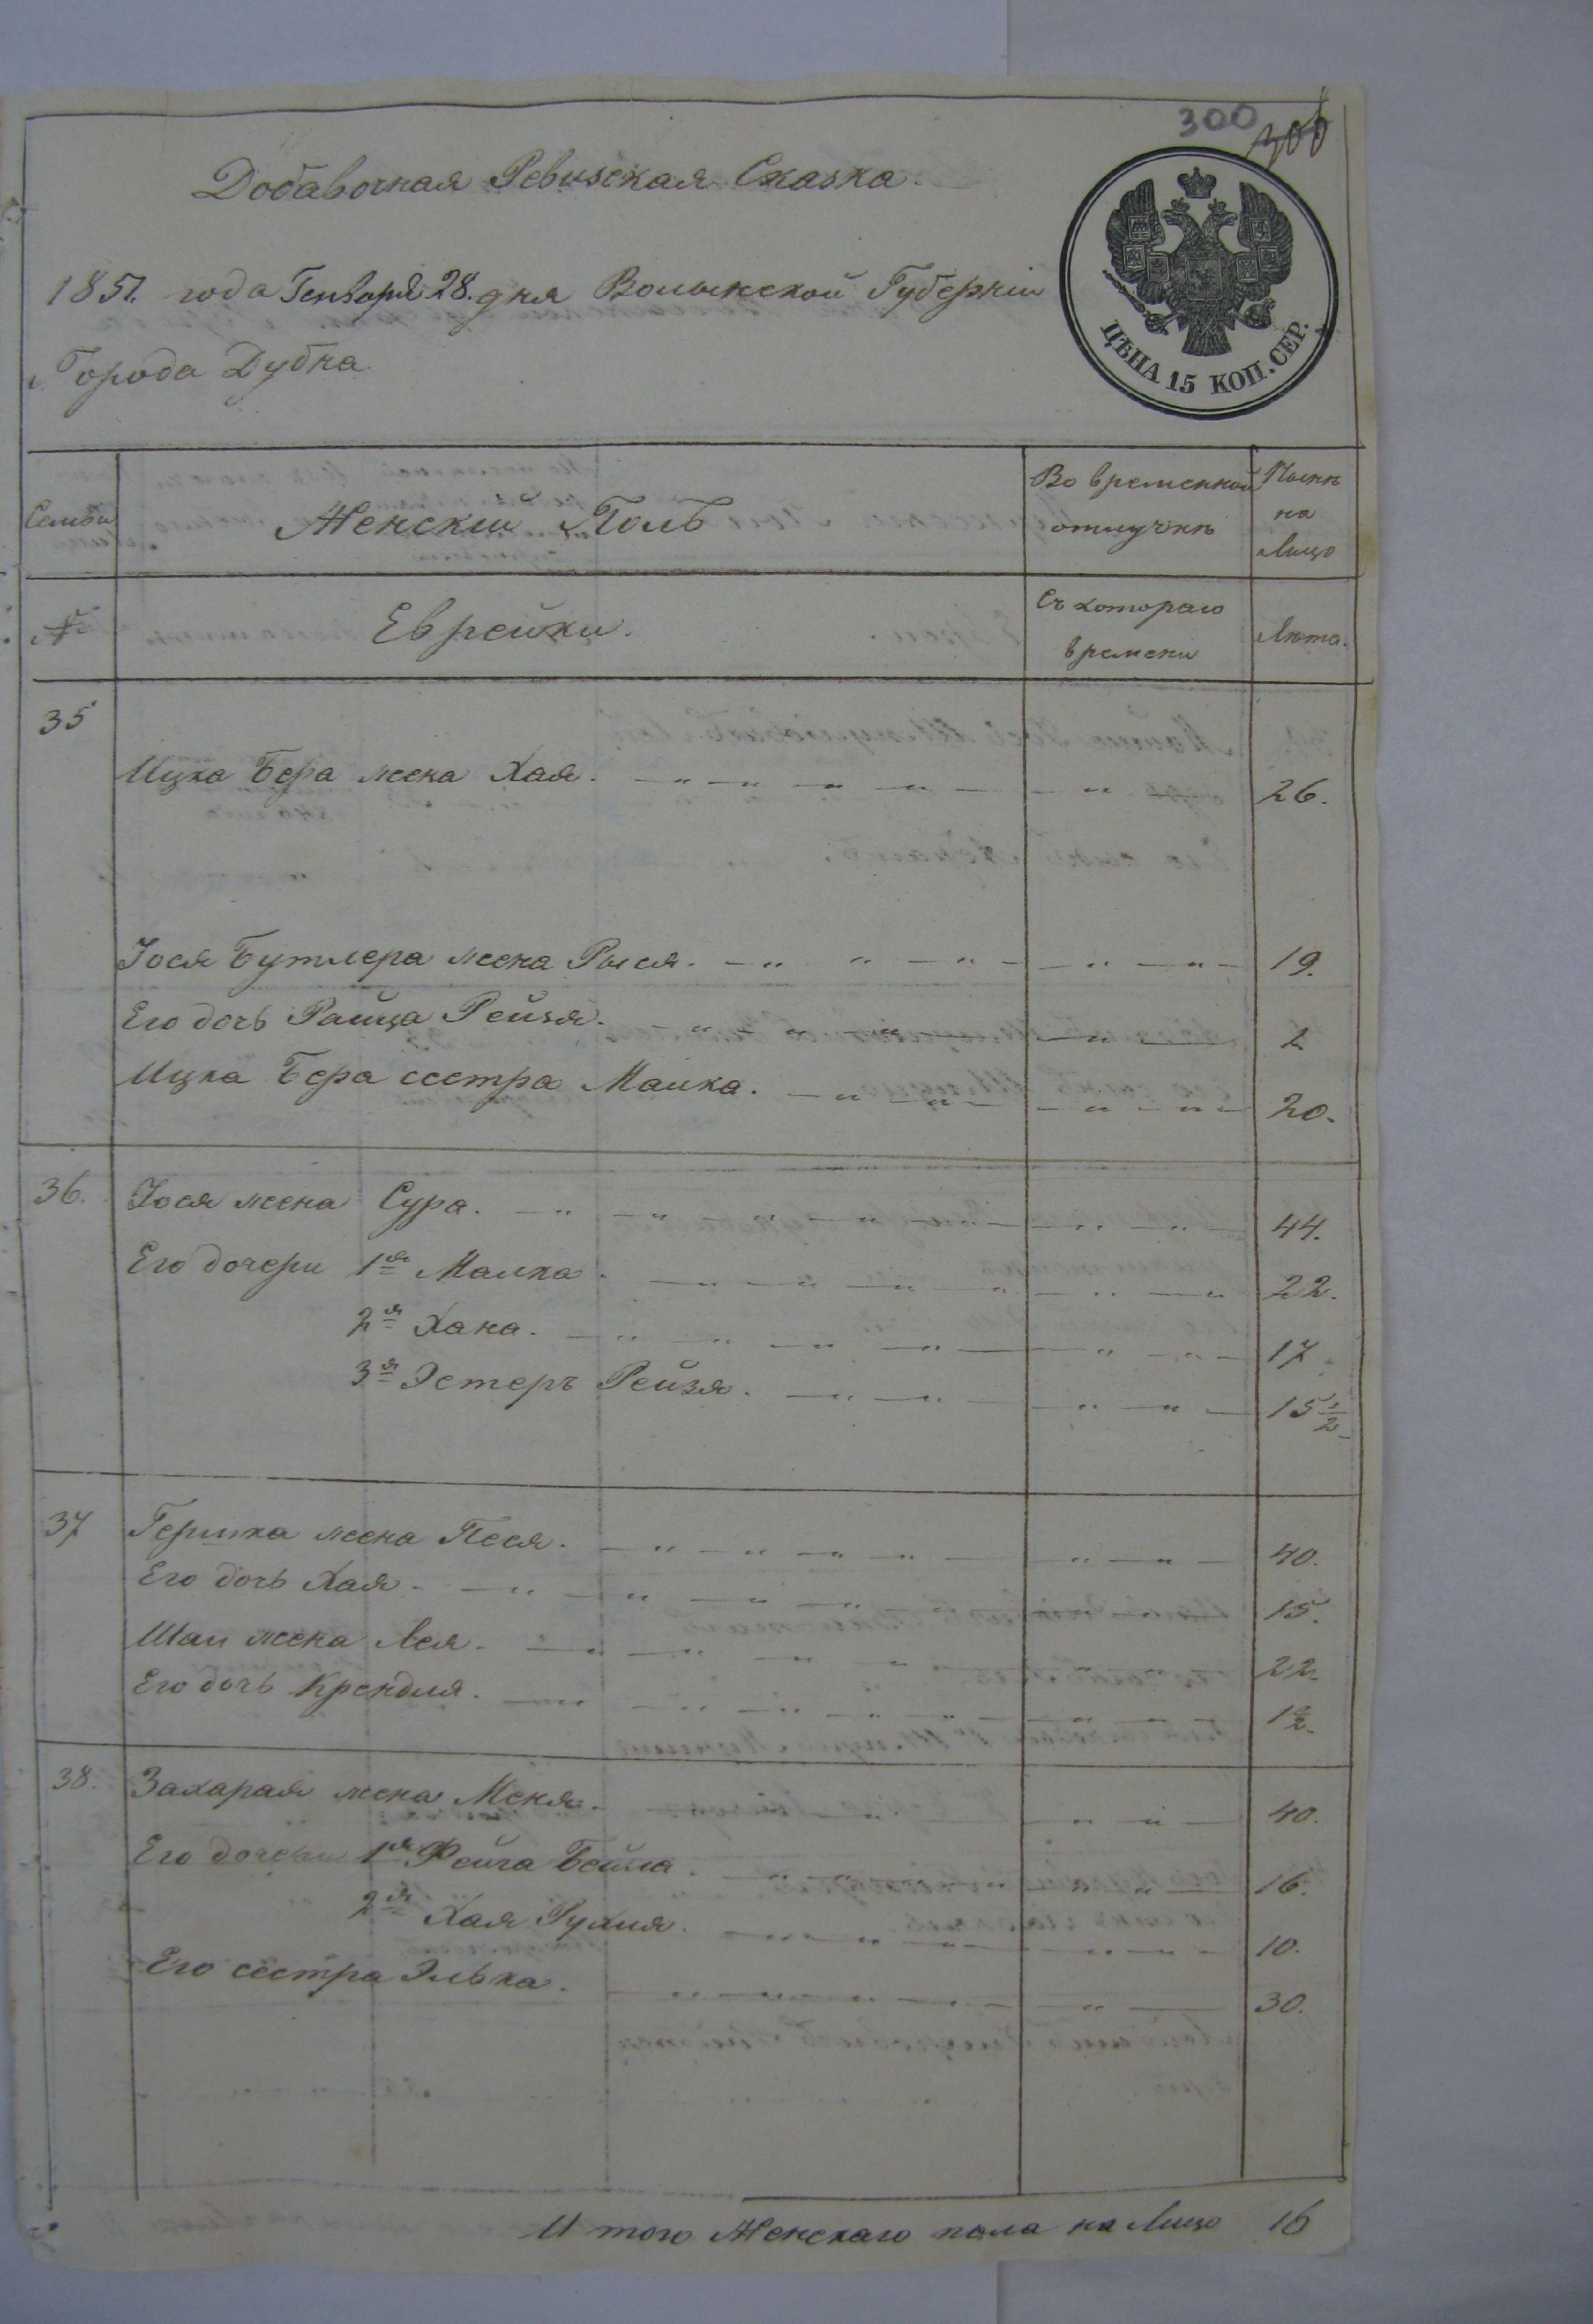 300 300
Добавочная Ревизская Сказка.
ЦѢНА 15 КОП. СЕР.
1851 года Генваря 28. дня Волынской Губерніи
Города Дубна
Семьи
Женскій Полъ
Во временной отлучкѣ
Нынѣ на Лицо
№
Еврейки.
Съ котораго времени
Лѣта.
35
Ицка Бера жена Хая. 26.
Іося Бутлера жена Рыся. 19.
Его дочь Раица Рейзя. 2
Ицка Бера сестра Малка. 20.
36. Іося жена Сура. 44.
Его дочери 1я Малка. 22.
2я Хана. 17.
3я Эстеръ Рейзя. 15 1/2
37 Гершка жена Песя. 40.
Его дочь Хая. 15.
Шаи жена Лея. 22.
Его дочь Крендля. 1/2.
38. Захарая жена Меня. 40.
Его дочери 1я Фейга Бейла. 16.
2я Хая Рухля. 10.
Его сестра Элька. 30.
И того Женскаго пола на Лицо 16